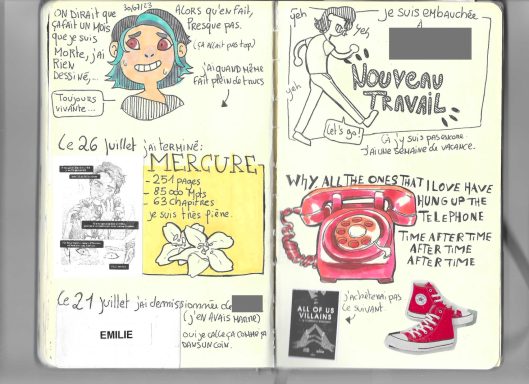 ON DIRAIT QUE
ÇA FAIT UN MOIS
QUE JE SUIS
MORTE, J'AI
RIEN
DESSINÉ,...
30/07/23
ALORS QU'EN FAIT,
PRESQUE PAS.
(ÇA AVAIT PAS TOP)
J'AI QUAND MÊME
FAIT PLEIN DE TRUCS
Toujours
vivante...
Le 26 juillet j'ai terminé:
MERCURE
- 251 pages
- 85 000 Mots
- 63 chapitres
je suis très fière.
Le 21 juillet j'ai démissionnée de
(J'EN AVAIS MARRE)
EMILIE
OUI JE CALE ÇA COMME ÇA
DANS UN COIN.
yeh
yes,
yeh
yeh
Let's go!
JE SUIS EMBAUCHÉE
À
NOUVEAU
TRAVAIL
ÇA J'Y SUIS PAS ENCORE
J'AI UNE SEMAINE DE VACANCE.
WHY, ALL THE ONES THAT I LOVE HAVE
HUNG UP THE
TELEPHONE
TIME AFTER TIME
AFTER TIME
AFTER TIME
ALL OF US
VILLAINS
J'ACHÈTERAI PAS
LE SUIVANT.